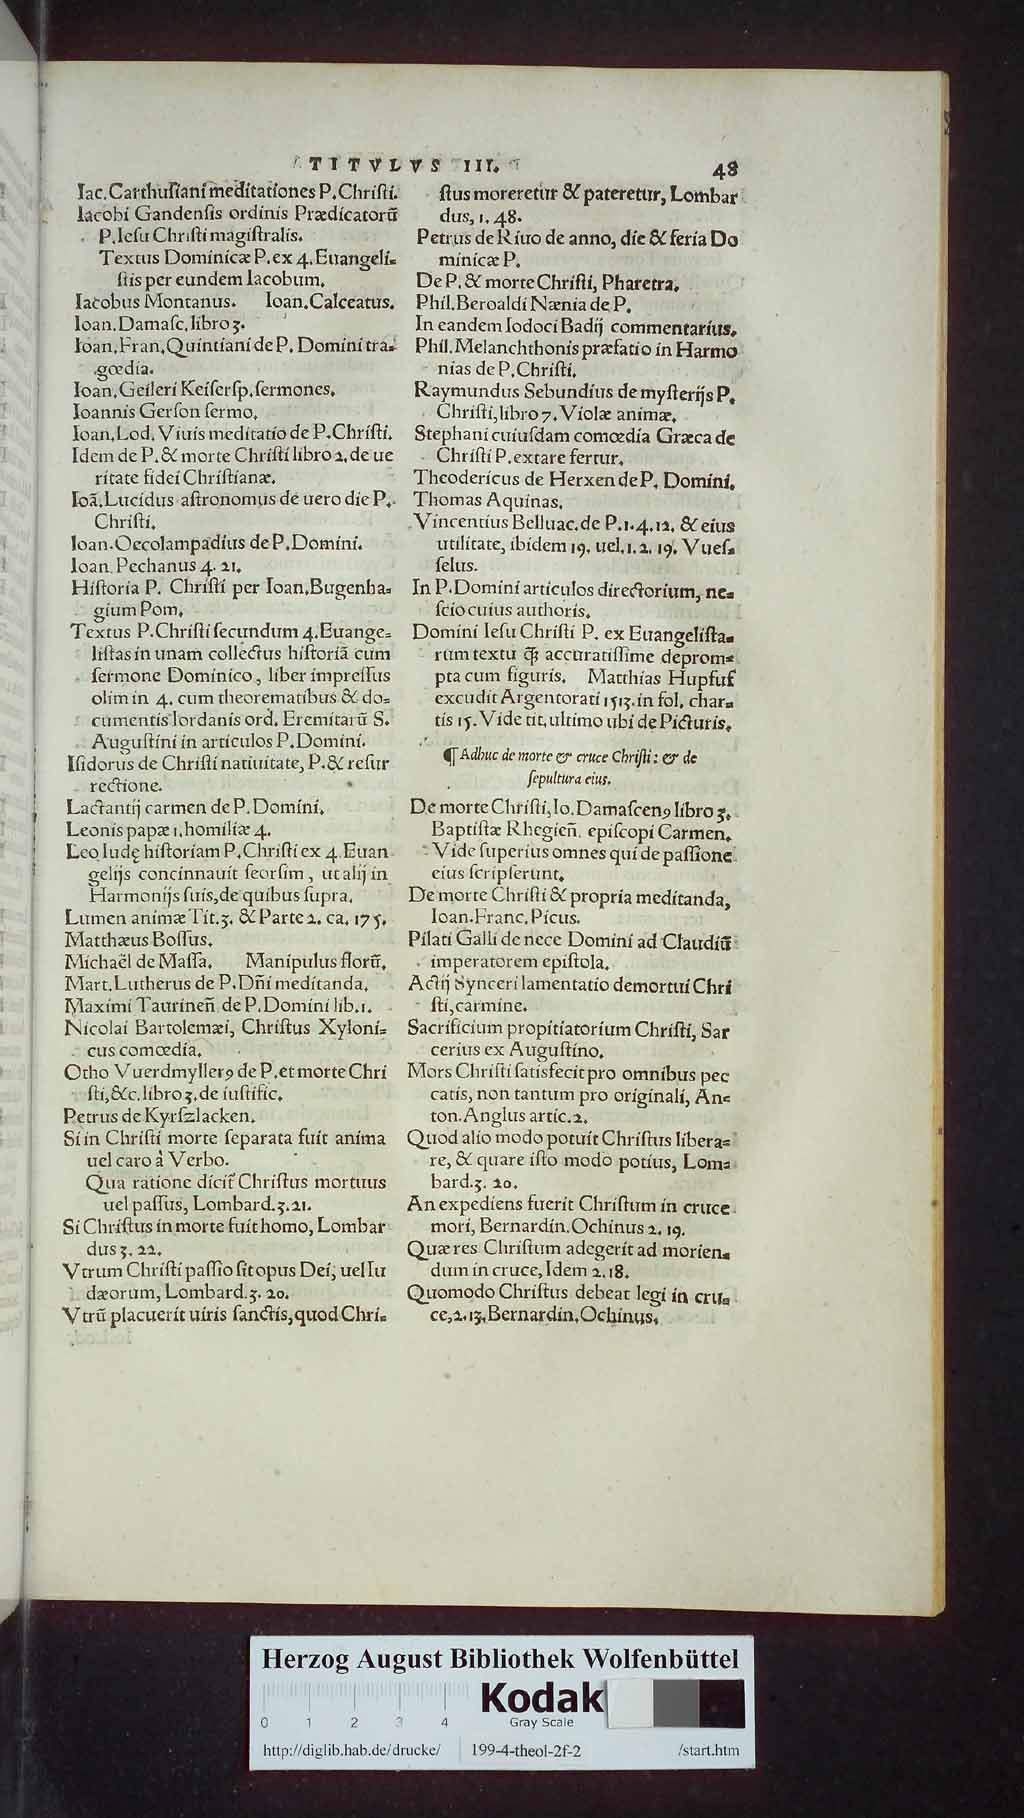 TITVLVS III. 48
Iac. Carthusiani meditationes P. Christi.
Iacobi Gandensis ordinis Prædicatorũ
P. Iesu Christi magistralis.
Textus Dominicæ P. ex 4. Euangeli=
stis per eundem Iacobum.
Iacobus Montanus. Ioan. Calceatus.
Ioan. Damasc. libro 3.
Ioan. Fran. Quintiani de P. Domini tra=
gœdia.
Ioan. Geileri Keisersp. sermones.
Ioannis Gerson sermo.
Ioan. Lod. Viuis meditatio de P. Christi.
Idem de P. & morte Christi libro 2. de ue
ritate fidei Christianæ.
Ioã. Lucidus astronomus de uero die P.
Christi.
Ioan. Oecolampadius de P. Domini.
Ioan. Pechanus 4. 21.
Historia P. Christi per Ioan. Bugenha=
gium Pom.
Textus P. Christi secundum 4. Euange=
listas in unam collectus historiã cum
sermone Dominico, liber impressus
olim in 4. cum theorematibus & do=
cumentis Iordanis ord. Eremitarũ S.
Augustini in articulos P. Domini.
Isidorus de Christi natiuitate, P. & resur
rectione.
Lactantij carmen de P. Domini.
Leonis papæ 1. homiliæ 4.
Leo Iudę historiam P. Christi ex 4. Euan
gelijs concinnauit seorsim, ut alij in
Harmonijs suis, de quibus supra.
Lumen animæ Tit. 3. & Parte 2. ca. 175.
Matthæus Bossus.
Michaël de Massa. Manipulus florũ.
Mart. Lutherus de P. Dñi meditanda.
Maximi Taurineñ. de P. Domini lib. 1.
Nicolai Bartolemæi, Christus Xyloni=
cus comœdia.
Otho Vuerdmyllerꝰ de P. et morte Chri
sti, &c. libro 3. de iustific.
Petrus de Kyrszlacken.
Si in Christi morte separata fuit anima
uel caro à Verbo.
Qua ratione dicit᷑ Christus mortuus
uel passus, Lombard. 3. 21.
Si Christus in morte fuit homo, Lombar
dus 3. 22.
Vtrum Christi passio sit opus Dei, uel Iu
dæorum, Lombard. 3. 20.
Vtrũ placuerit uiris sanctis, quod Chri=
stus moreretur & pateretur, Lombar
dus, 1. 48.
Petrus de Riuo de anno, die & feria Do
minicæ P.
De P. & morte Christi, Pharetra.
Phil. Beroaldi Nænia de P.
In eandem Iodoci Badij commentarius.
Phil. Melanchthonis præfatio in Harmo
nias de P. Christi.
Raymundus Sebundius de mysterijs P.
Christi, libro 7. Violæ animæ.
Stephani cuiusdam comœdia Græca de
Christi P. extare fertur.
Theodericus de Herxen de P. Domini.
Thomas Aquinas.
Vincentius Belluac. de P. 1. 4. 12. & eius
utilitate, ibidem 19. uel. 1. 2. 19. Vues=
selus.
In P. Domini articulos directorium, ne=
scio cuius authoris.
Domini Iesu Christi P. ex Euangelista=
rum textu q̃ accuratissime deprom=
pta cum figuris. Matthias Hupfuf
excudit Argentorati 1513. in fol. char=
tis 15. Vide tit. ultimo ubi de Picturis.
¶ Adhuc de morte & cruce Christi: & de
sepultura eius.
De morte Christi, Io. Damascenꝰ libro 3.
Baptistæ Rhegieñ. episcopi Carmen.
Vide superius omnes qui de passione
eius scripserunt.
De morte Christi & propria meditanda,
Ioan. Franc. Picus.
Pilati Galli de nece Domini ad Claudiũ
imperatorem epistola.
Actij Synceri lamentatio demortui Chri
sti, carmine.
Sacrificium propitiatorium Christi, Sar
cerius ex Augustino.
Mors Christi satisfecit pro omnibus pec
catis, non tantum pro originali, An=
ton. Anglus artic. 2.
Quod alio modo potuit Christus libera=
re, & quare isto modo potius, Lom=
bard. 3. 20.
An expediens fuerit Christum in cruce
mori, Bernardin. Ochinus 2. 19.
Quæ res Christum adegerit ad morien=
dum in cruce, Idem 2. 18.
Quomodo Christus debeat legi in cru=
ce, 2. 13. Bernardin. Ochinus.
Herzog August Bibliothek Wolfenbüttel
Kodak
0 1 2 3 4 Gray Scale
http://diglib.hab.de/drucke/ 199-4-theol-2f-2 /start.htm